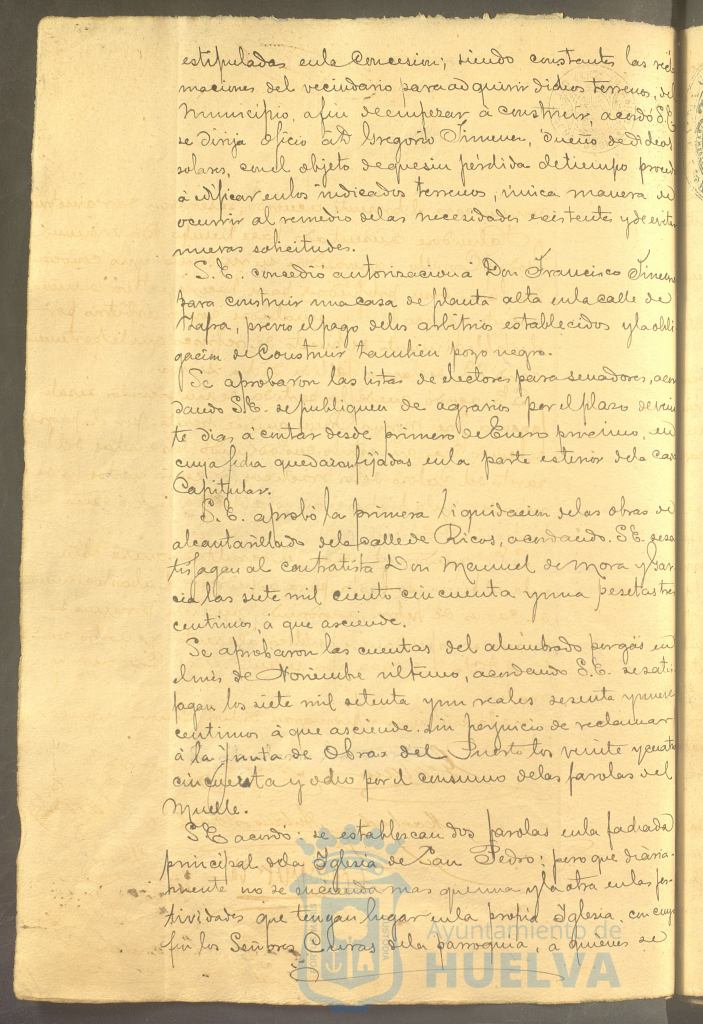 estipuladas enla Concesion; siendo constantes las recla
maciones del vecindario para adquirir dichos terrenos, del
Municipio, a fin de empezar á construir, acordó S.E
se dirija oficio á D Gregorio Jimenez, dueño de
solares, con el objeto de que sin pérdida de tiempo proced
á edificar enlos indicados terrenos, única manera de
ocurrir al remedio delas necesidades existentes y de evitar
nuevas solicitudes.
S.E. concedió autorizacion á Don Francisco Jimenez
para construir una casa de planta alta enla calle de
Zafra, prévio el pago delos arbitrios establecidos y la obli
gacion de Construir tambien pozo negro.
Se aprobaron las listas de electores para senadores, acor
dando S.E. se publiquen de agravios por el plazo de vein
te dias á contar desde primero de Enero proximo, en
cuya fecha quedaron fijadas enla parte esterior dela casa
Capitular.
S.E. aprobó la primera liquidacion delas obras de
alcantarillado dela calle de Ricos, acordando S.E. se sa
tisfagan al contratista Don Manuel de Mora y Gar
cia las siete mil ciento cincuenta y una pesetas tres
centimos, á que asciende.
Se aprobaron las cuentas del alumbrado por gas en
el mes de Noviembre último, acordando S.E. se satis
fagan los siete mil setenta y un reales sesenta y nueve
centimos á que asciende. sin perjuicio de reclamar
á la Junta de Obras del Puerto los veinte y cuatro
cincuenta y ocho por el consumo delas farolas del
Muelle.
S.E acordó: se establescan dos farolas enla fachada
principal dela Iglesia de San Pedro: pero que diaria-
mente no se encienda mas que una y la otra enlas fes
tividades que tengan lugar enla propia Iglesia, con cuyo
fin los Señores Curas dela parroquia, á quienes se
Ayuntamiento de
HUELVA